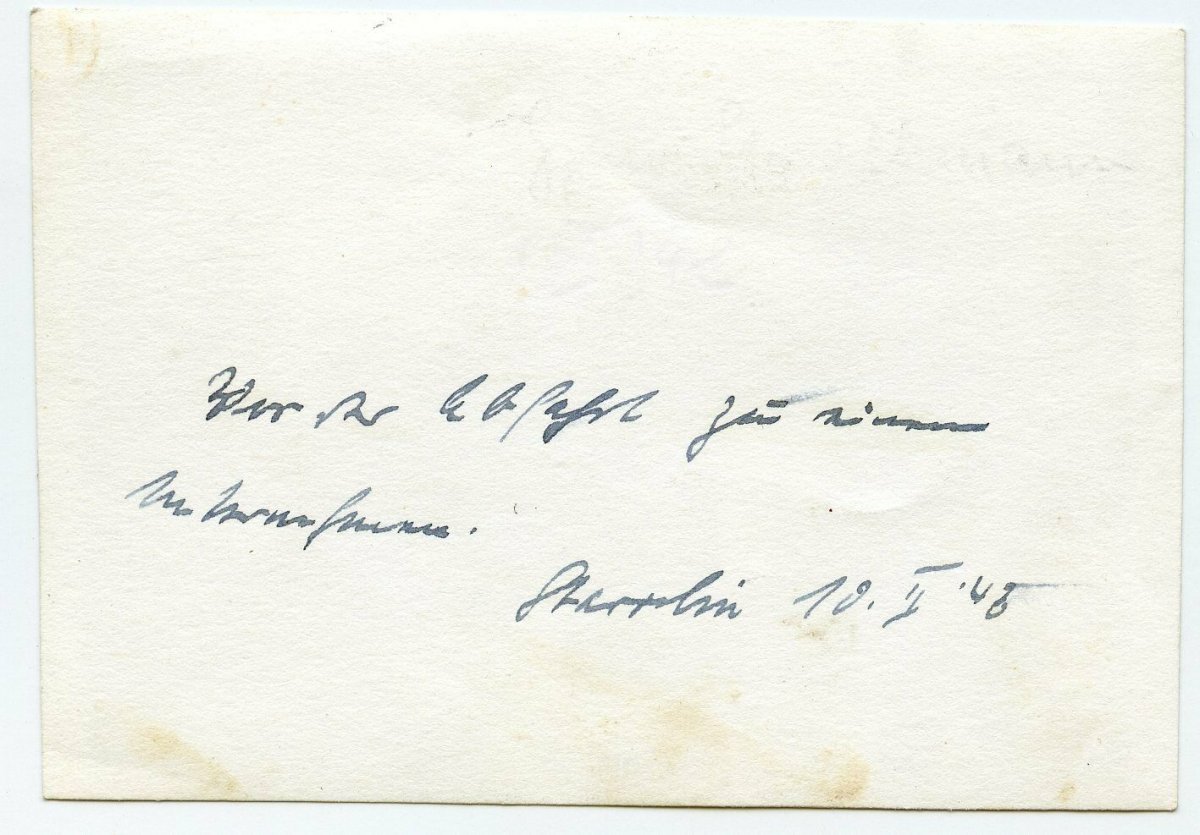 Vor der Abfahrt zu einem
Unternehmen.
10. II '45